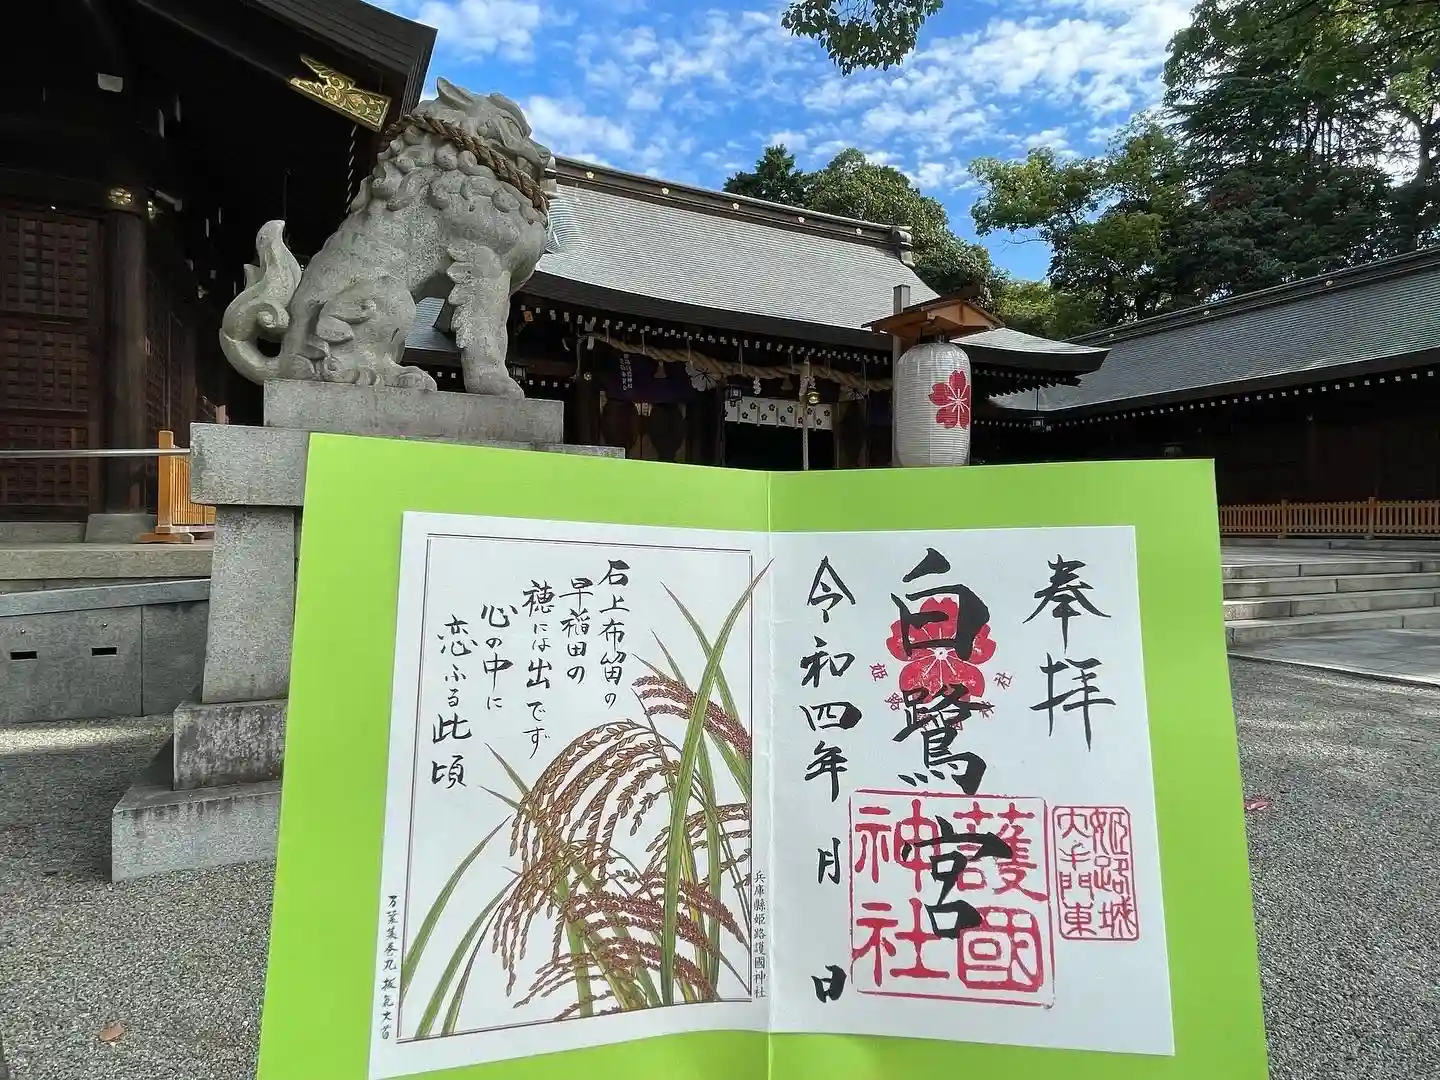 奉拝
白鷺宮
令和四年 月 日
護國神社
姫路城大手門東
石上布留の
早稲田の
穂には出でず
心の中に
恋ふる此頃
兵庫縣姫路護國神社
万葉集巻九 抜気大首